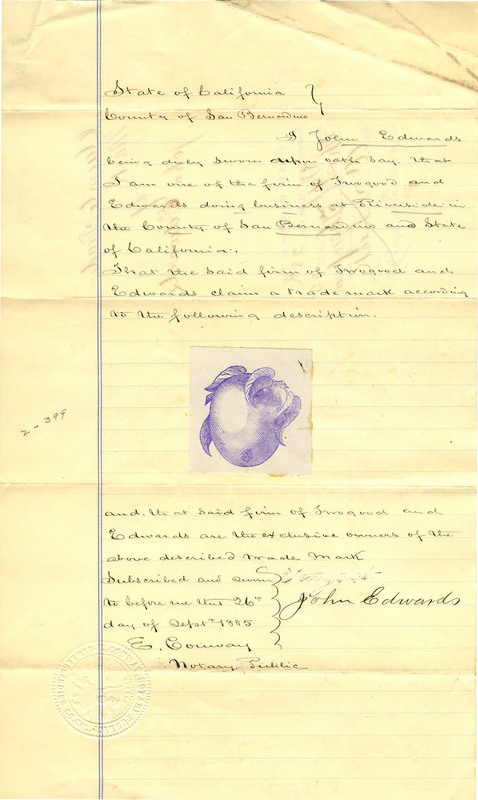 State of California
County of San Bernardino
I John Edwards
being duly sworn upon oath say. that
I am one of the firm of Twogood and
Edwards doing business at Riverside in
the County of San Bernardino and State
of California.
That the said firm of Twogood and
Edwards claim a trade mark according
to the following description.
2-399
and that said firm of Twogood and
Edwards are the exclusive owners of the
above described trade mark
Subscribed and sworn
to before me this 26th
day of Septr 1885
E. Conway
Notary Public
John Edwards